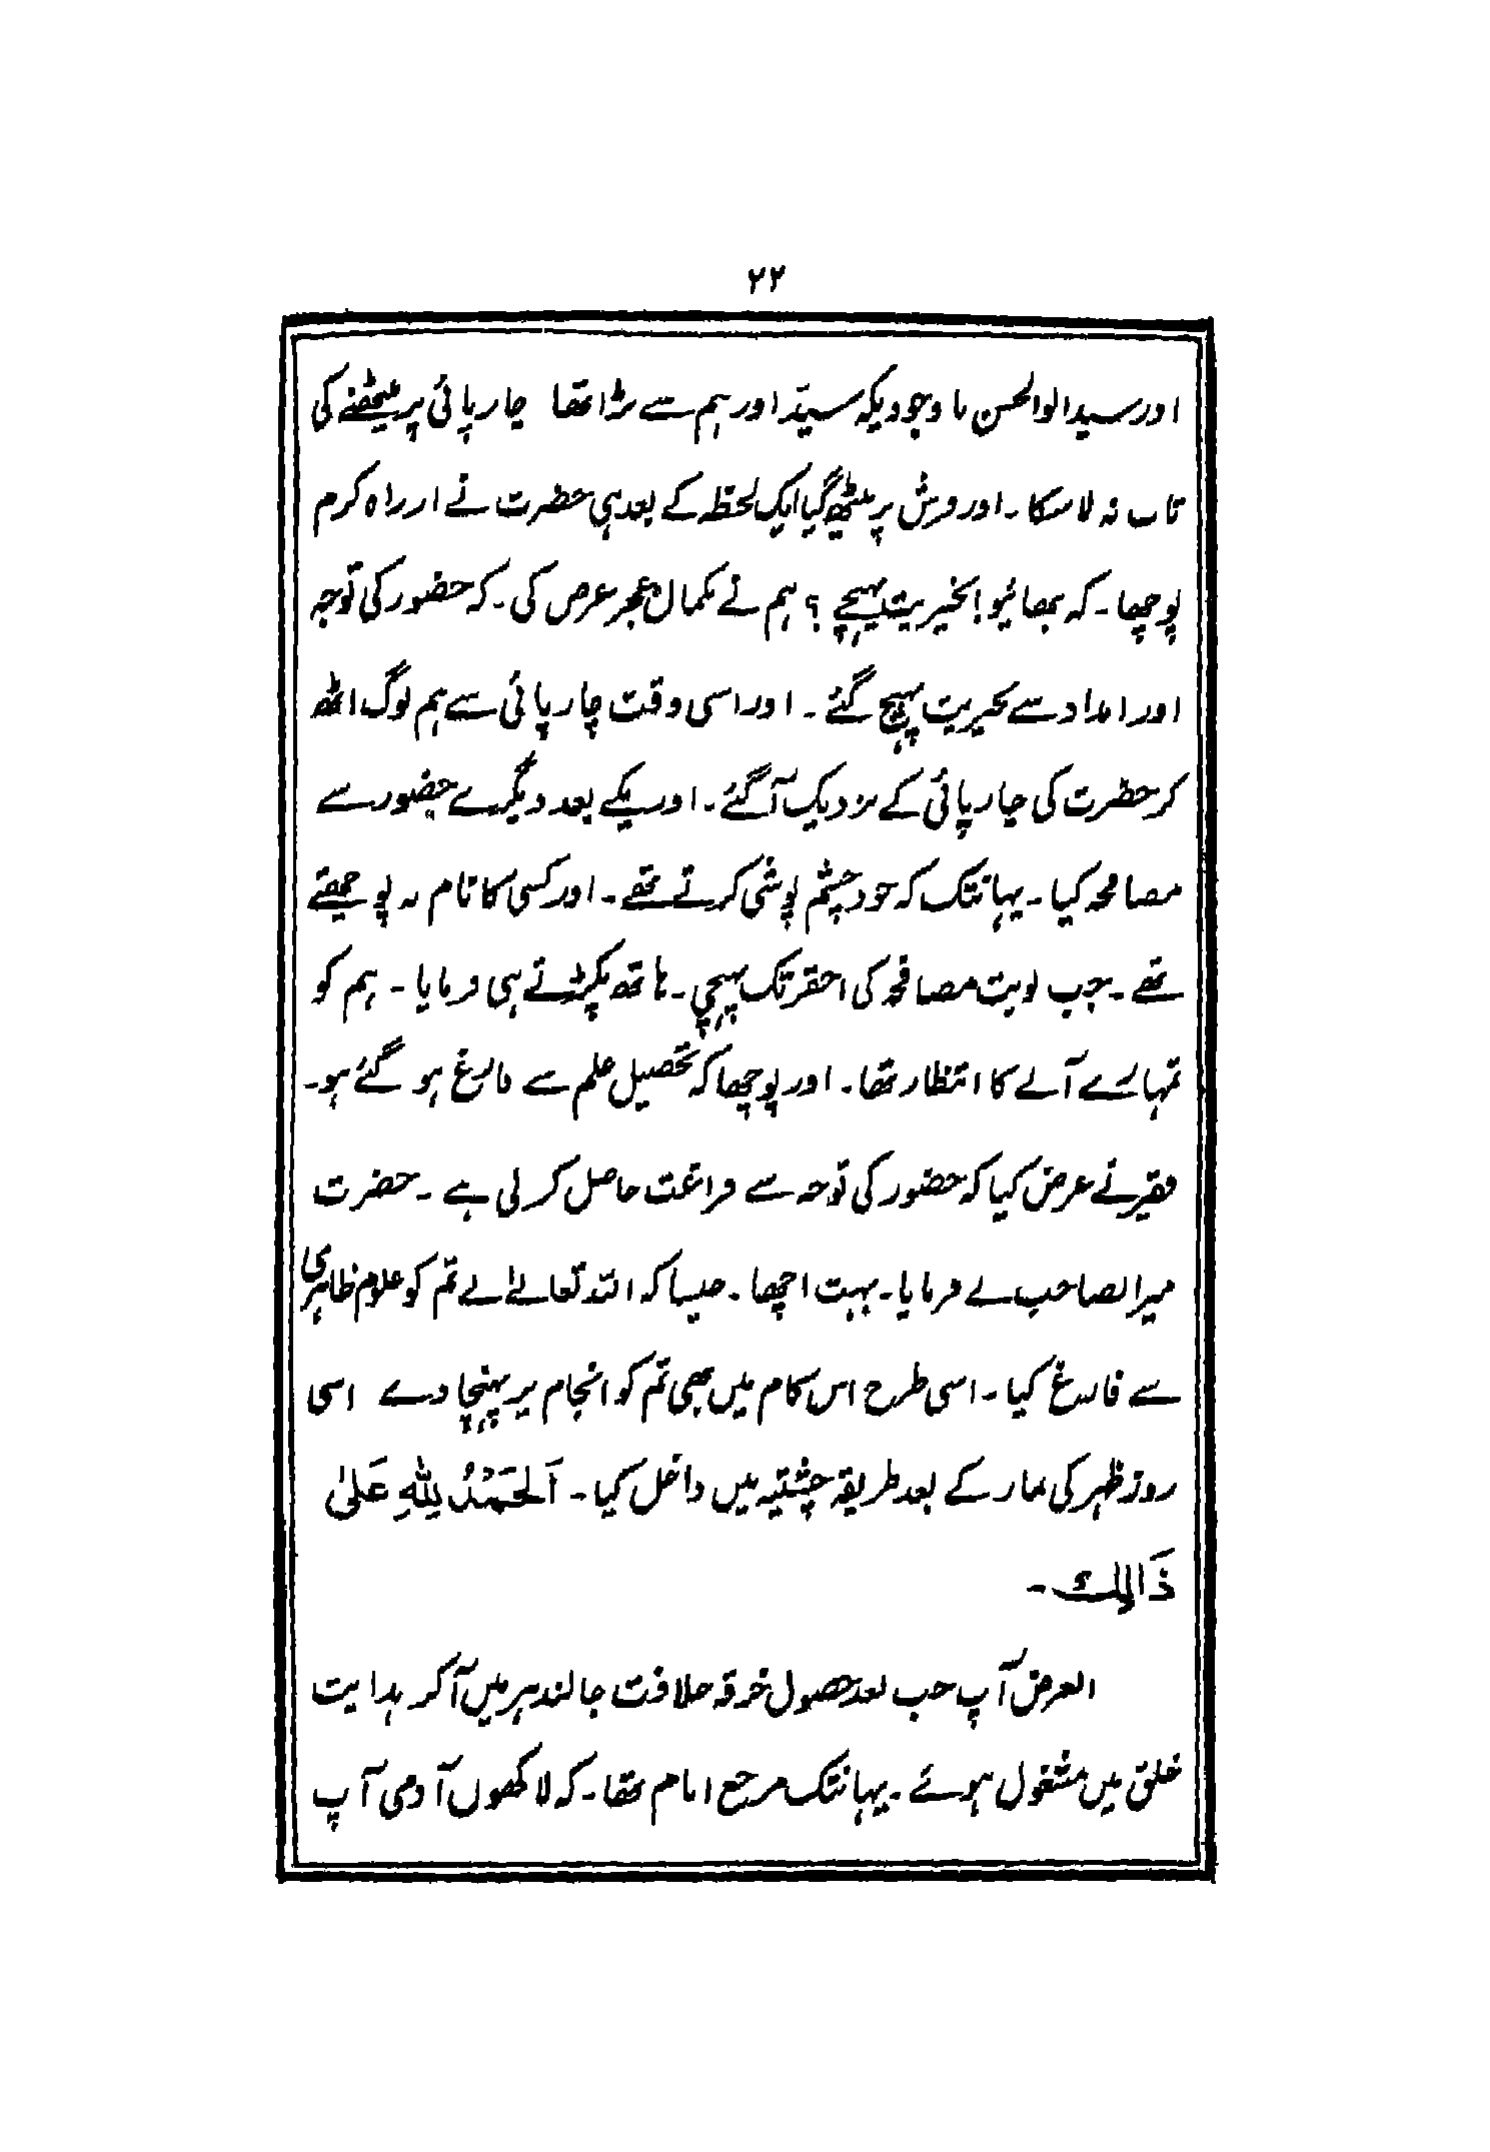 ۲۲
اور سید ابوالحسن باوجودیکہ سیّد اور ہم سے بڑا تھا چارپائی پر بیٹھنے کی
تاب نہ لا سکا۔ اور فرش پر بیٹھ گیا ایک لحظہ کے بعد ہی حضرت نے ازراہ کرم
پوچھا۔ کہ بھائیو! بخیریت پہنچے ؟ ہم نے بکمال عجز عرض کی۔ کہ حضور کی توجہ
اور امداد سے بخیریت پہنچ گئے ۔ اور اسی وقت چارپائی سے ہم لوگ اٹھ
کر حضرت کی چارپائی کے نزدیک آگئے۔ اور یکے بعد دیگرے حضور سے
مصافحہ کیا۔ یہانتک کہ خود چشم پوشی کرتے تھے۔ اور کسی کا نام نہ پوچھتے
تھے۔ جب نوبت مصافحہ کی احقر تک پہنچی۔ ہاتھ پکڑتے ہی فرمایا۔ ہم کو
تمہارے آنے کا انتظار تھا۔ اور پوچھا کہ تحصیل علم سے فارغ ہو گئے ہو۔
فقیر نے عرض کیا کہ حضور کی توجہ سے فراغت حاصل کر لی ہے ۔ حضرت
میرانصاحب نے فرمایا۔ بہت اچھا۔ جیسا کہ اللہ تعالےٰ نے تم کو علوم ظاہری
سے فارغ کیا۔ اسی طرح اس کام میں بھی تم کو انجام پر پہنچا دے اسی
روز ظہر کی نماز کے بعد طریقہ چشتیہ میں داخل کیا۔ اَلحَمْدُ لِلّٰہِ عَلیٰ
ذَالِکَ۔
الغرض آپ جب بعد حصول خرقہ خلافت جالندہر میں آکر ہدایت
خلق میں مشغول ہوئے۔ یہانتک مرجع انام تھا۔ کہ لاکھوں آدمی آپ